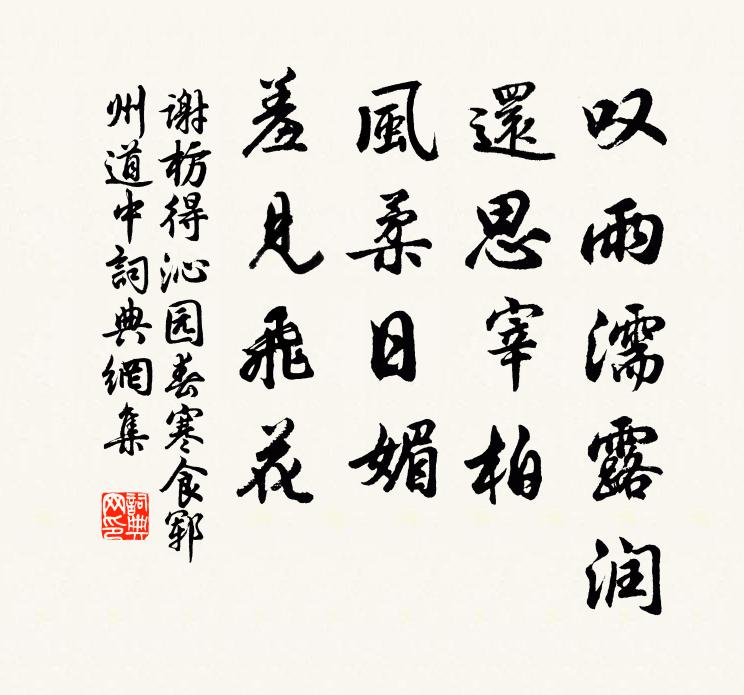 叹雨濡露润
還思宰柏
風柔日媚
羞見飛花
谢枋得沁园春寒食郓
州道中詞典網集
詞典
网印